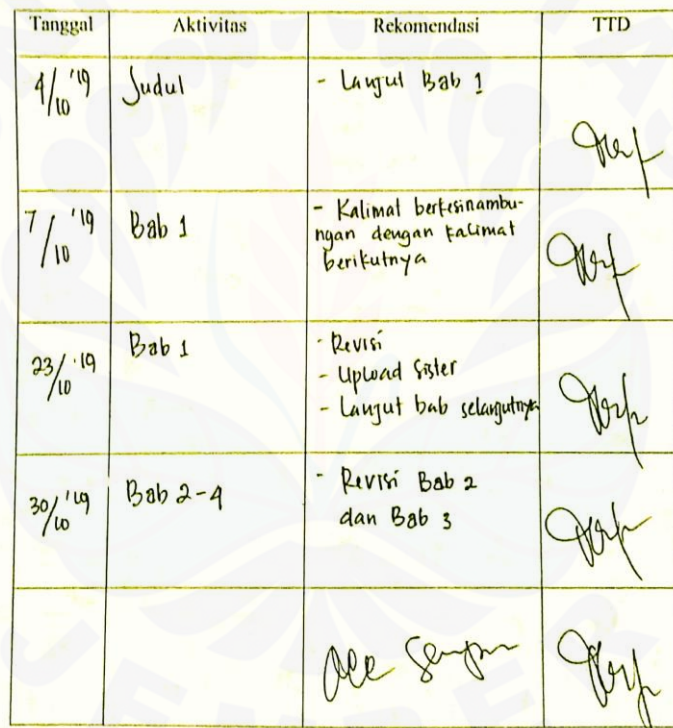 Tanggal Aktivitas Rekomendasi TTD
4/10 '19 Judul - Lanjut Bab 1
7/10 '19 Bab 1 - Kalimat berkesinambu-
ngan dengan kalimat
berikutnya
23/10 '19 Bab 1 - Revisi
- Upload Sister
- Lanjut bab selanjutnya
30/10 '19 Bab 2-4 - Revisi Bab 2
dan Bab 3
JEMBER